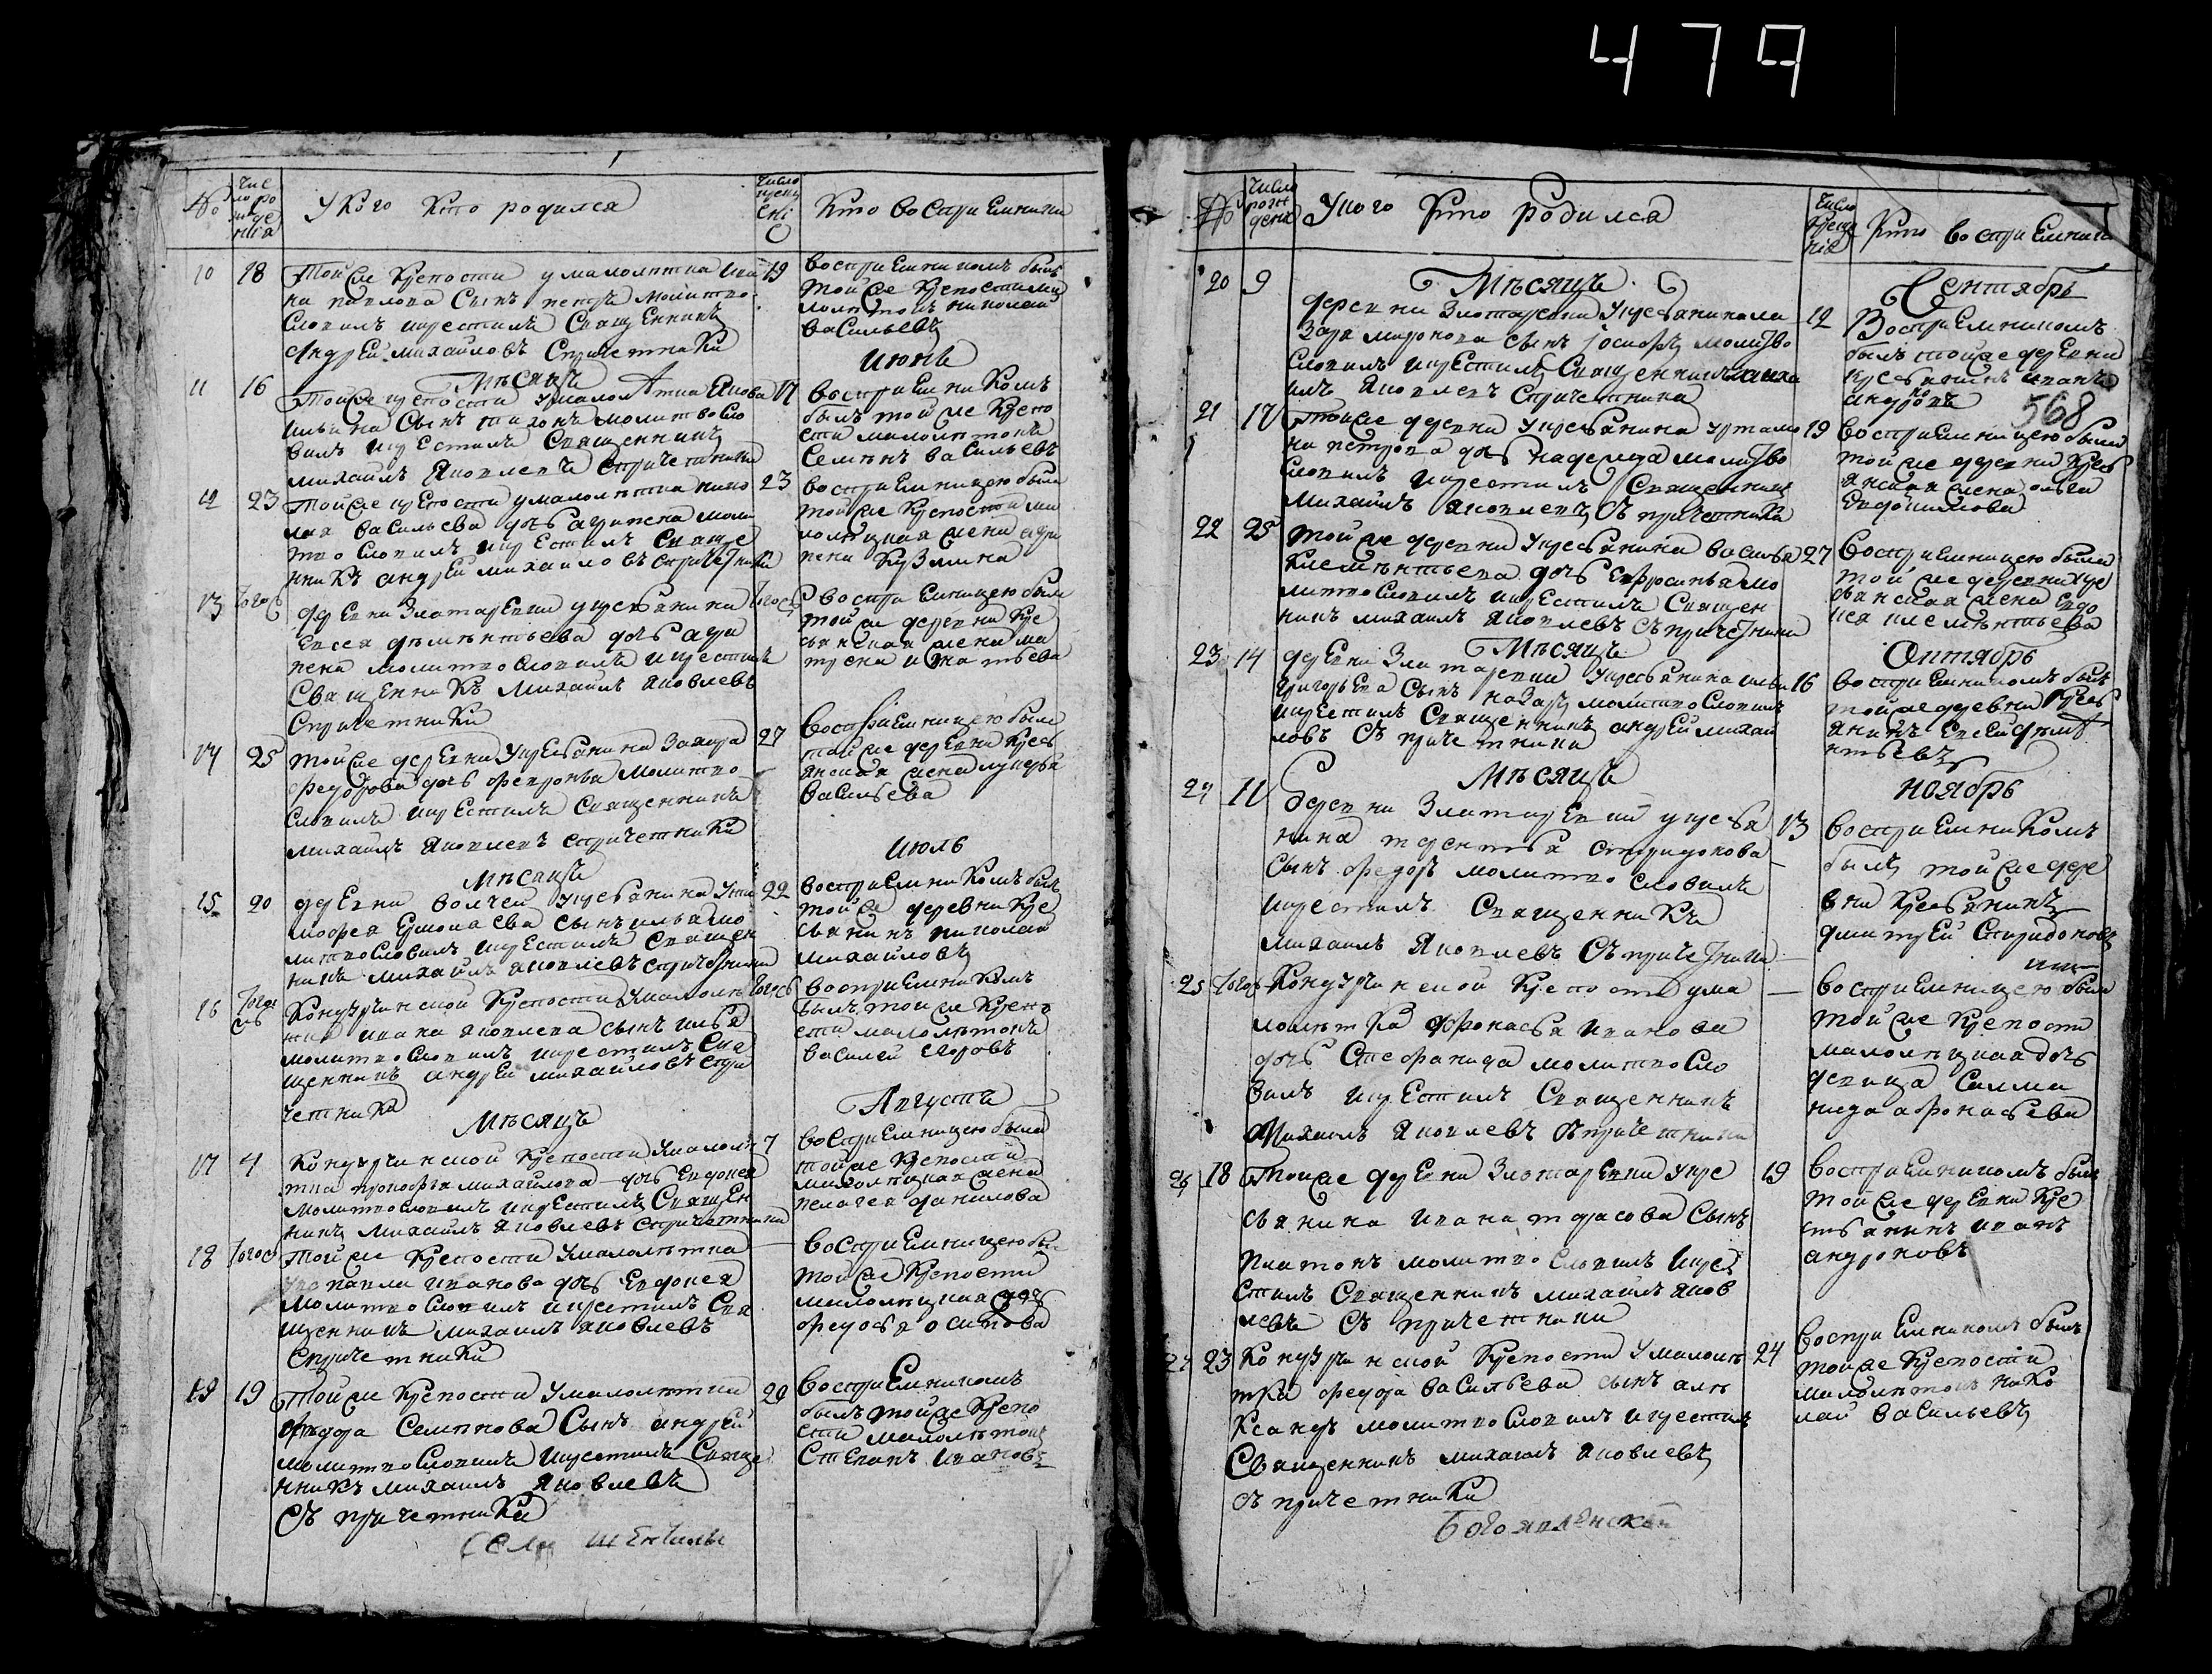 479
№
Чис
ло ро
жде
ния
У Кого Кто родился
Число
креще
ние
Кто восприемники
10 18 Той же крепости у малолетка Ива 19
на павлова Сынъ петръ молитво
Словилъ икрестилъ Священникъ
Андрей михайловъ Спричетники
восприемникомъ былъ
той же крепости ма
лолетокъ николай
васильевъ
Мѣсяцъ июнь
11 16 Той же крепости у малол
ильина Сынъ тихонъ молитвосло
вилъ икрестилъ Священникъ
михаилъ яковлевъ спричетники
17 восприемникомъ
былъ той же крепо
сти малолѣтокъ
Семенъ васильевъ
12 23 Той же крепости умалолѣтка нико
лая васильева дочь агрипена моли
тво словилъ икрестилъ Свяще
нникъ андрей михаиловъ спричетники
23 восприемницею была
той же крепости ма
лолетная жена агри
пена кузмина
13 Того
деревни Златаревки укрестьянина
Евсея дѣмѣнтьева дочь агри
пена молитвословилъ икрестилъ
Священникъ михаилъ яковлевъ
Спричетники
Того
восприемницею была
той же деревни кре
стьянская жена ма
трена игнатьева
14 25 той же деревни укрестьянина Захара
федорова дочь февронья молитво
словилъ икрестилъ Священникъ
михаилъ яковлевъ спричетники
27 восприемницею была
той же деревни крест
янская жена лукерья
васильева
Мѣсяцъ июль
15 20 деревни волчей укрестьянина Ти
мофея Ермолаева сынъ илья мо
литвословилъ икрестилъ Священ
никъ михаилъ яковлевъ спричетники
22 восприемникомъ былъ
той же деревни кре
стьянинъ николай
михайловъ
16 Того
Кондурчинской крепости умалолѣ
тка ивана яковлева сынъ илья
молитвословилъ икрестилъ Свя
щенникъ андрей михайловъ спри
четники
Того
восприемникомъ
былъ той же крепо
сти малолѣтокъ
василей егоровъ
Мѣсяцъ Августъ
17 4 Кондурчинской крепости умалолѣ
тка прокофья михайлова дочь Евдокея
молитвословилъ икрестилъ Священ
никъ михаилъ яковлевъ спричетники
7 восприемницею была
той же крепости
малолетная жена
пелагея данилова
18 Того
той же крепости умалолѣтка
иванова дочь Евдокея
молитвословилъ икрестилъ Свя
щенникъ михаилъ яковлевъ
спричетники
восприемницею бы
той же крепости
малолетная дочь
федосья осипова
19 19 Той же крепости умалолѣтка
федора Семенова Сынъ андрей
молитвословилъ икрестилъ Свяще
нникъ михаилъ яковлевъ
Съ причетники
20 восприемникомъ
былъ той же крепо
сти малолѣтокъ
Степанъ ивановъ
села
№
Число
рож
дения
У кого Кто родился
Число
креще
ния
Кто восприемники
Мѣсяцъ Сентябрь
20 9 деревни Златаревки укрестьянина ла
заря миронова сынъ иосифъ молитво
словилъ икрестилъ Священникъ миха
илъ яковлевъ спричетники
12 Восприемникомъ
былъ той же деревни
крестьянинъ иванъ
андроновъ
568
21 17 той же деревни укрестьянина артамо
на петрова дочь надежда молитво
словилъ икрестилъ Священникъ
михаилъ яковлевъ съ причетники
19 восприемницею была
той же деревни крест
янская жена ольга
Евдокимова
22 25 той же деревни укрестьянина василья
клемѣнтьева дочь Евфросинья мо
литвословилъ икрестилъ Священ
никъ михаилъ яковлевъ съ причетники
27 восприемницею была
той же деревни кре
стьянская жена Евдо
кея клемѣнтьева
Мѣсяцъ Октябрь
23 14 деревни Златаревки укрестьянина ильи
григорьева сынъ назаръ молитвословилъ
икрестилъ Священникъ андрей михай
ловъ съ причетники
16 восприемникомъ былъ
той же деревни крест
янинъ Евсей дѣмѣ
нтьевъ
Мѣсяцъ ноябрь
24 11 деревни Златаревки укрестья
нина терентья спиридонова
сынъ федоръ молитвословилъ
икрестилъ Священникъ
михаилъ яковлевъ съ причетники
13 восприемникомъ
былъ той же дере
вни крестьянинъ
дмитрей Спиридоновъ
25 Того
Кондурчинской крепости ума
лолѣтка афонасья иванова
дочь Стефанида молитвосло
вилъ икрестилъ Священникъ
михаилъ яковлевъ съ причетники
восприемницею была
той же крепости
малолетная дочь
девица Салма
нида афонасьева
26 18 той же деревни Златаревки укре
стьянина ивана тарасова Сынъ
платонъ молитвословилъ икре
стилъ Священникъ михаилъ яков
левъ съ причетники
19 восприемникомъ былъ
той же деревни кре
стьянинъ иванъ
андроновъ
27 23 Кондурчинской крепости умалолѣ
тка федора васильева сынъ але
ксандръ молитвословилъ икрестилъ
Священникъ михаилъ яковлевъ
съ причетники
24 восприемникомъ былъ
той же крепости
малолѣтокъ нико
лай васильевъ
Богоявленской